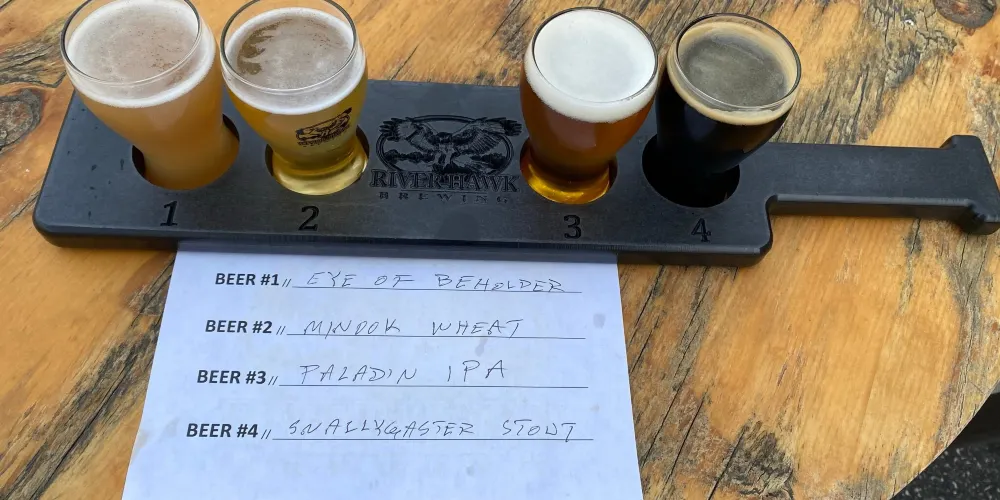 RIVER HAWK
BREWING
1 2 3 4
BEER #1// EYE OF BEHOLDER
BEER #2// MINDOK WHEAT
BEER #3// PALADIN IPA
BEER #4// SNALLYGASTER STOUT